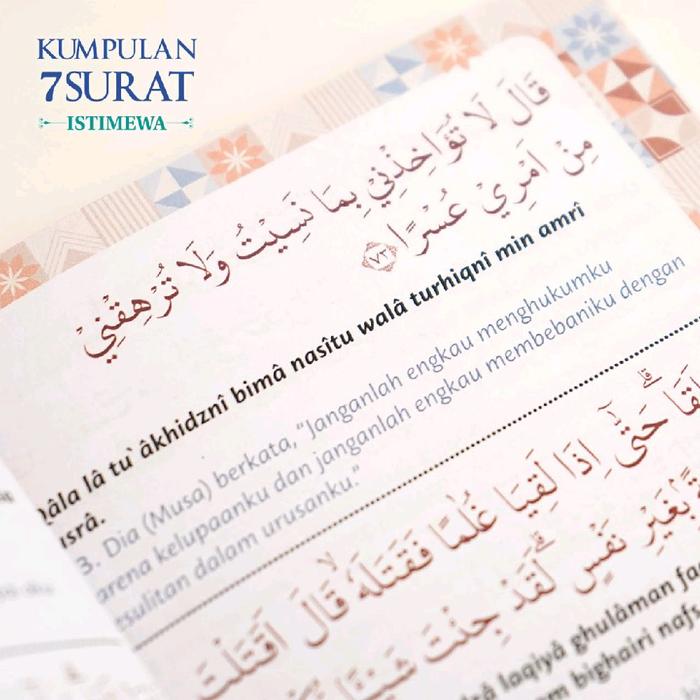 KUMPULAN
7SURAT
ISTIMEWA
قَالَ لَا تُؤَاخِذْنِيْ بِمَا نَسِيْتُ وَلَا تُرْهِقْنِيْ
مِنْ اَمْرِيْ عُسْرًا ٧٣
qâla lâ tu`âkhidznî bimâ nasîtu walâ turhiqnî min amrî
usrâ.
3. Dia (Musa) berkata, “Janganlah engkau menghukumku
arena kelupaanku dan janganlah engkau membebaniku dengan
esulitan dalam urusanku.”
حَتّٰىٓ اِذَا لَقِيَا غُلٰمًا فَقَتَلَهٗۙ قَالَ اَقَتَلْتَ
بِغَيْرِ نَفْسٍۗ لَقَدْ جِئْتَ شَيْـًٔا
laqiyâ ghulâman
bighairi